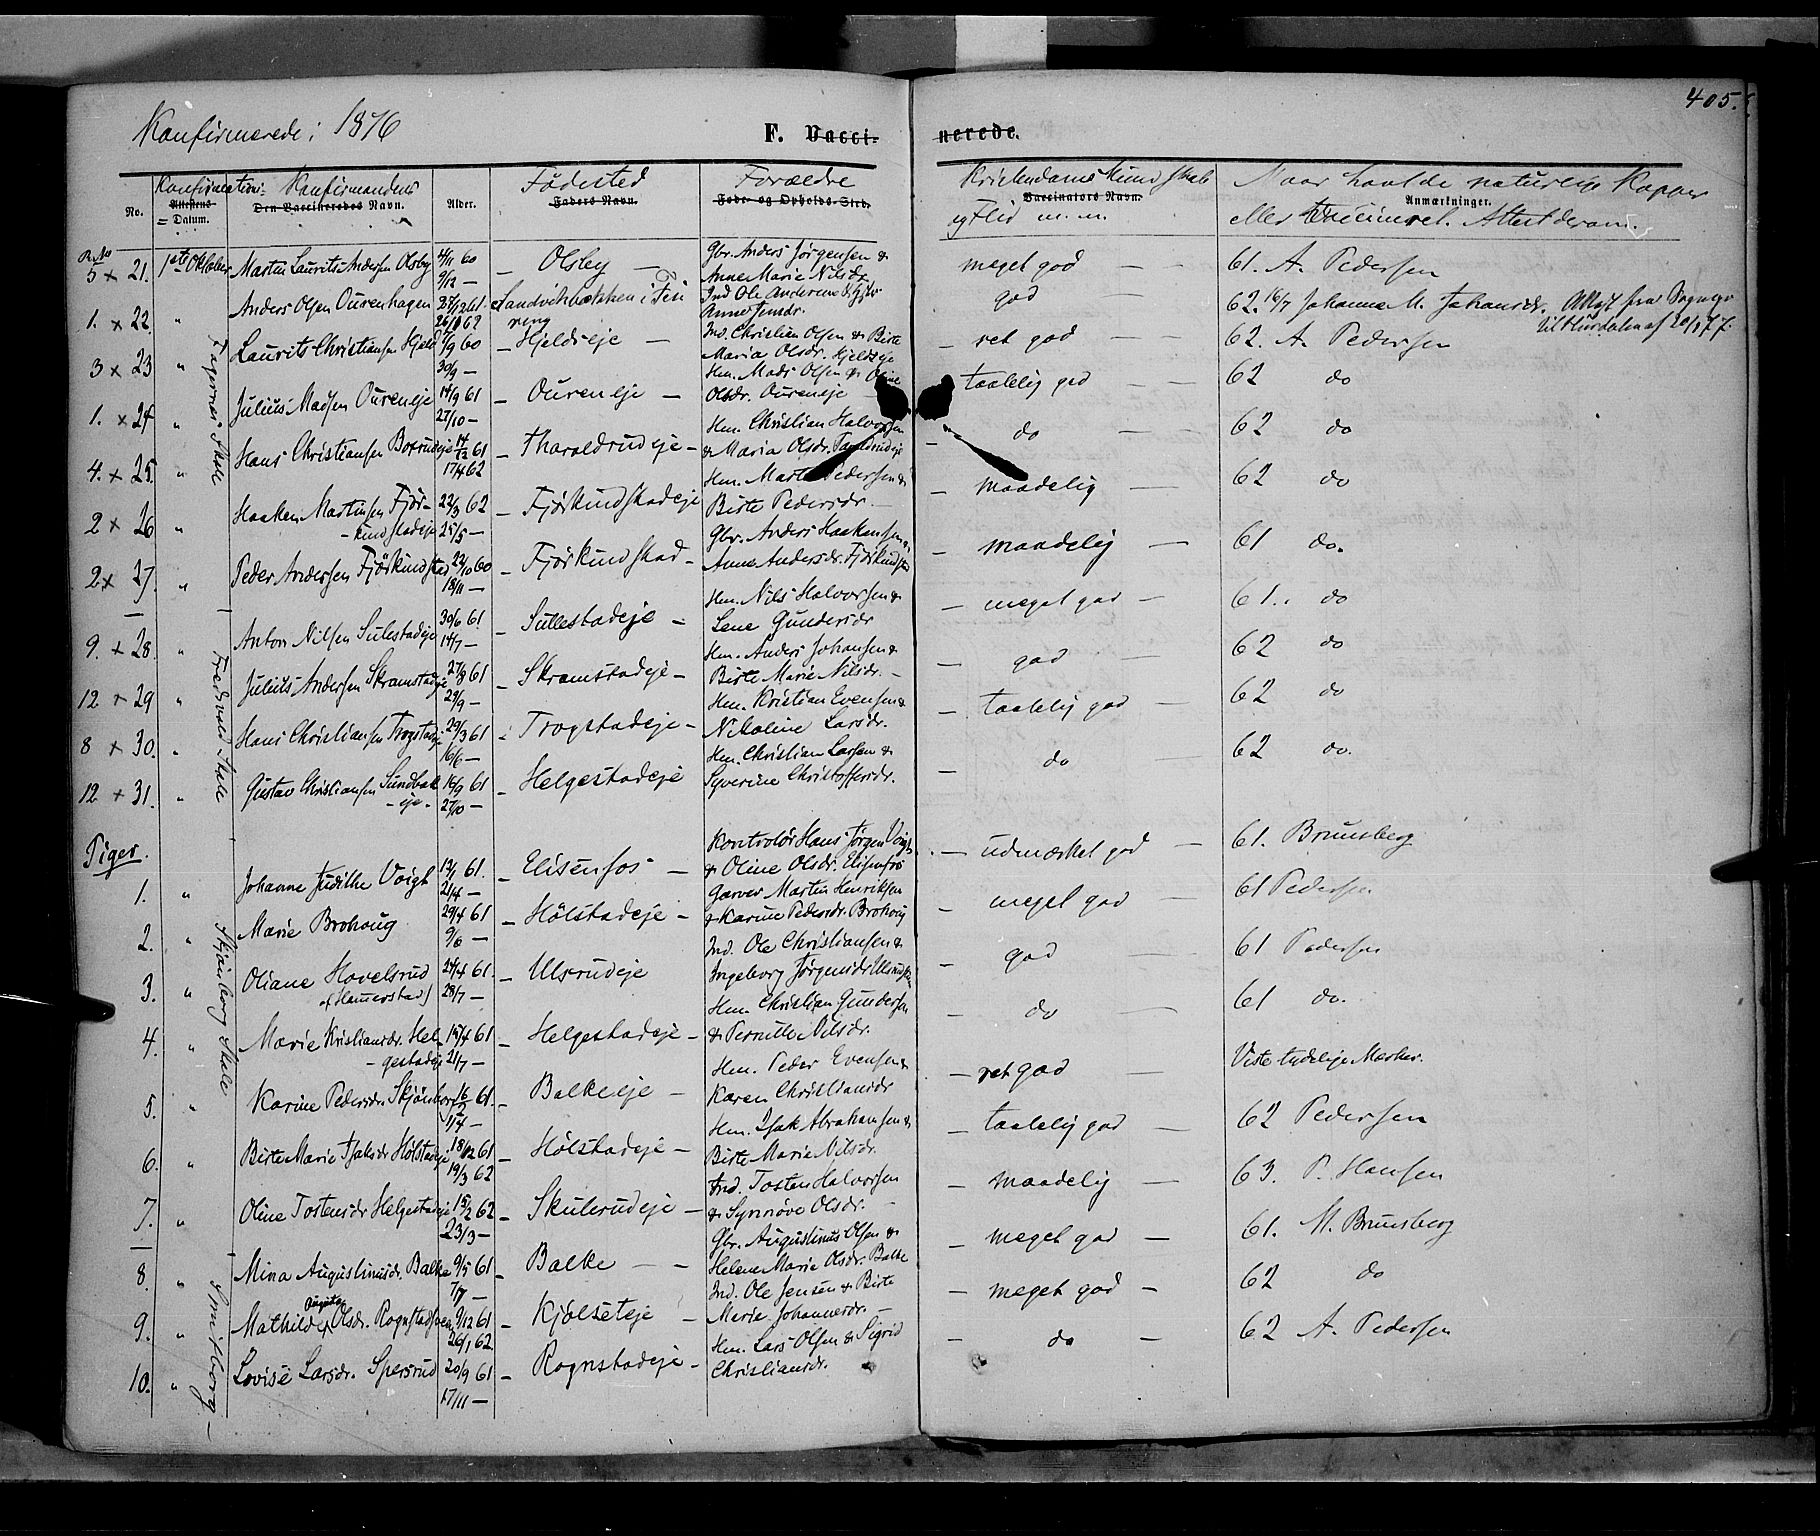 405.
Konfirmerede i 1876
F. Vacci- nerede.
No. Konfirmations- Attestens Datum. Konfirmandens Den Vaccineredes Navn. Alder. Fødested Faders Navn. Forældre Føde- og Opholds-Sted. Kristendomskundskab Vaccinators Navn. og Flid m. m. Naar havde naturlige Kopper Anmærkninger. eller Vaccineret. Attest derom.
5 x 21. 1ste Oktober Martin Laurits Andersen Olsby 4/11 60 9/12 — Olsby — Gbr. Anders Jørgensen & Anne Marie Nilsdr. meget god — 61. A. Pedersen
1. x 22. " Anders Olsen Ourenhagen 27/12 61. 62 Sandvichbakken i Fering Ind. Ole Andersen & Anne Jensdr. god 62. 16/7 Johanne M. Johansdr. Attest fra Sognepr til Hurdalen af 20/1 77.
3 x 23 " Laurits Christiansen Hjeld 7/9 60 30/9 — Hjeldseje — Ind. Christian Olsen & Birte Maria Olsdr. Hjeldseje — ret god — 62. A. Pedersen
1. x 24 " Julius Madsen Oureneje 14/9 61 27/10 — Oureneje — Hm. Mads Olsen & Oline Olsdr. Oureneje — taalelig god — 62 do
4. x 25. " Hans Christiansen Borrudeje 14/12 61 17/4 62 — Tharaldrudeje — Hm. Christian Halvorsen & Maria Olsdr. — do 62 do
2 x 26 " Haaken Martinsen Fjørkindstadeje 22/3 62 25/5 — Fjørkindstadeje Hm. Martin Pedersen & Birte Pedersdr. — maadelig 62 do
2 x 27. " Peder Andersen Fjørkindstad 22/10 60 18/11 — Fjørkindstad — Gbr. Anders Haakensen & Anne Andersdr. Fjørkindstad — maadelig — 61 do.
9. x 28. " Anton Nilsen Sulestadeje 30/6 61 14/7 — Sullestadeje — Hm. Nils Halvorsen & Lene Gundersdr — meget god — 61. do
12 x 29 " Julius Andersen Skramstadeje 27/8 61 29/9 — Skramstadeje — Hm. Anders Johansen & Birte Marie Nilsdr. — god — 62 do
8 x 30. " Hans Christiansen Trogstadeje 29/3 61 16/6 — Trogstadeje — Hm. Kristian Evensen & Nikoline Larsdr. — taalelig god — 62 do
12 x 31. " Gustav Christiansen Sundbakeje. 16/9 61 27/10 — Helgestadeje Hm. Christian Larsen & Syverine Christoffersdr. — do 62 do.
Fagernæs Skole
Fredsvold Skole
Piger.
1. " Johanne Judithe Voigt 13/1 61. 21/4 — Elisenfos — Kontrolør Hans Jørgen Voigt & Oline Olsdr. Elisenfos — udmærket god — 61. Brunsberg
2. " Marie Brohoug 29/4 61 9/6 — Hølstadeje — Garver Martin Henriksen & Karine Pedersdr. Brohoug — meget god — 61 Pedersen
3. " Oliane Hovelsrud af Hammerstad 24/4 61. 28/7 — Ulsrudeje Ind. Ole Christiansen & Ingeborg Jørgensdr — god — 61 Pedersen
4. " Marie Kristiansdr. Helgestadeje 15/4 61 21/7 — Helgestadeje — Hm. Christian Gundersen & Pernille Nilsdr. — do — 61 do.
5. " Karine Pedersdr. Skjønborg 16/2 61. 1/4 — Balkeeje — Hm. Peder Evensen & Karen Christiansdr — ret god — Viste tydelige Mærker.
6. " Birte Marie Isaksdr Hølstadeje 18/12 61 19/3 62 — Hølstadeje — Hm. Isak Abrahamsen & Birte Marie Nilsdr. — taalelig god — 62 Pedersen
7. " Oline Tostensdr Helgestadeje 15/2 62 23/3 — Skulerudeje — Ind. Tosten Halvorsen & Synnøve Olsdr. — maadelig — 63. P. Hansen
8 " Mina Augustinusdr. Balke 9/5 61 7/7 — Balke — Gbr. Augustinus Olsen & Helene Marie Olsdr. Balke — meget god — 61. M. Brunsberg
9. " Mathilde Augusta Olsdr. Rognstadsveen 9/12 61 26/1 62 — Kjølseteje — Ind. Ole Jensen & Birte Marie Johannesdr. — meget god — 62 do
10. " Lovise Larsdr. Spersrud 20/9 61 17/11 — Rognstadeje — Hm. Lars Olsen & Sigrid Christiansdr. — do — 62 A. Pedersen
Skjønborg Skole
Smidtborg —